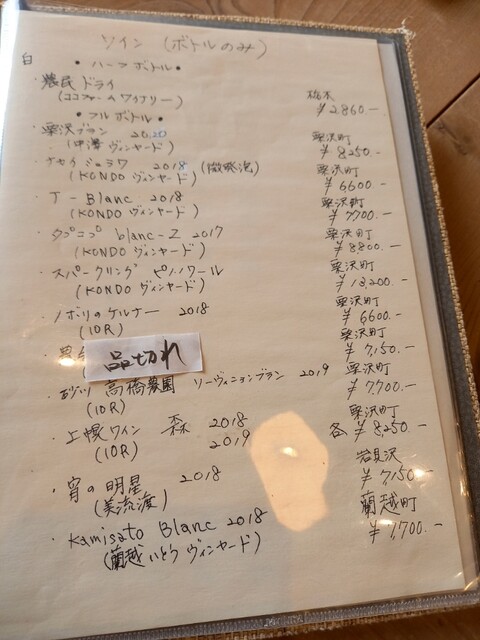 ワイン (ボトルのみ)
白
• ハーフボトル •
・農民ドライ 栃木
(ココファームワイナリー) ¥2,860.—
• フルボトル •
栗沢ブラン 2020 栗沢町
(中澤ヴィンヤード) ¥8,250.—
・ナカイミサワ 2018 (微発泡) 栗沢町
(KONDOヴィンヤード) ¥6600.—
・T-Blanc 2018 栗沢町
(KONDOヴィンヤード) ¥7700.—
・タプコプ blanc-Z 2017 栗沢町
(KONDOヴィンヤード) ¥8,800.—
・スパークリング ピノノワール 栗沢町
(KONDOヴィンヤード) ¥13,200.—
・ノボリのケルナー 2018 栗沢町
(10R) ¥6600.—
・ 品切れ 栗沢町
¥7,150.—
・砂川 高橋農園 ソーヴィニョンブラン 2019 栗沢町
(10R) ¥7,700.—
・上幌ワイン 森 2018 栗沢町
(10R) 2019 各¥8,250.—
・宵の明星 2018 岩見沢
(美流渡) ¥7,150—
・Kamisato Blanc 2018 蘭越町
(蘭越いとうヴィンヤード) ¥7,700.—